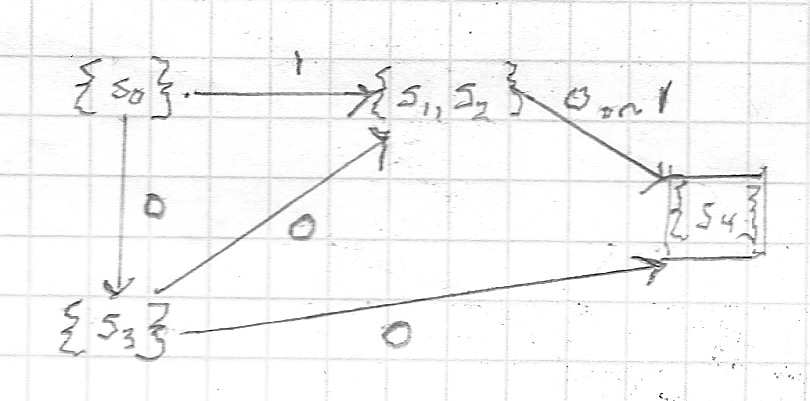 1
{S0} {S1, S2} 0 or 1
0 0 {S4}
{S3} 0